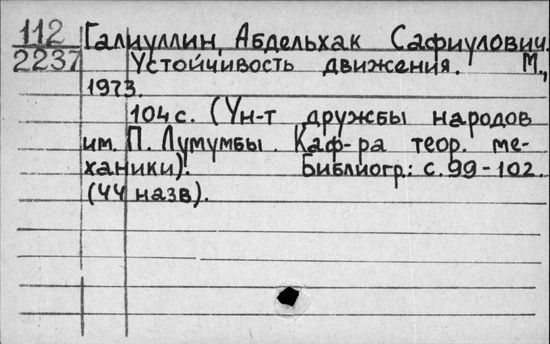 112 Галиуллин, Абдельхак Сафиулович.
2237 Устойчивость движения. М.,
1973.
104 с. (Ун-т дружбы народов
им. П. Лумумбы. Каф-ра теор. ме-
ханики). Библиогр.: с. 99-102.
(44 назв).